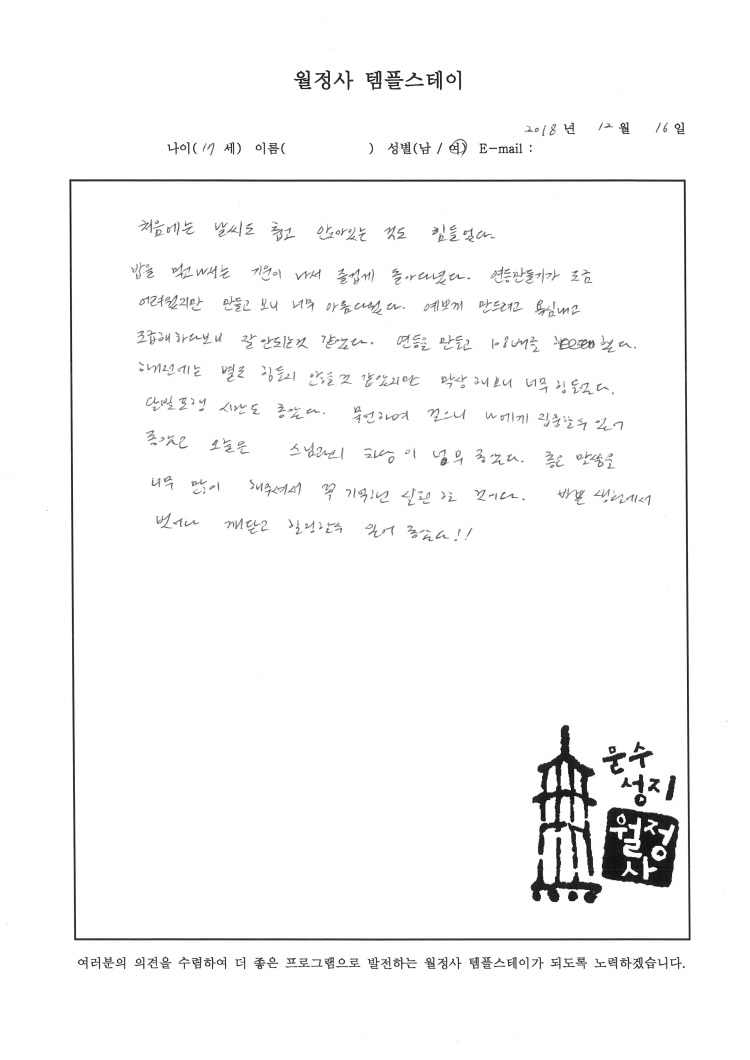 월정사 템플스테이
2018 년 12 월 16 일
나이( 17 세) 이름( ) 성별(남 / 여) E-mail :
처음에는 날씨도 춥고 앉아있는 것도 힘들었다.
밥을 먹고나서는 기운이 나서 즐겁게 돌아다녔다. 연등만들기가 조금
어려웠지만 만들고 보니 너무 아름다웠다. 예쁘게 만드려고 욕심내고
조급해하다보니 잘 안되는것 같았다. 연등을 만들고 108배를 했다.
하기전에는 별로 힘들지 않을것 같았지만 막상 해보니 너무 힘들었다.
달빛포행 시간도 좋았다. 묵언하며 걸으니 나에게 집중할수 있어
좋았고 오늘은 스님과의 차담이 넘무 좋았다. 좋은 말씀을
너무 많이 해주셔서 꼭 기억하면서 살 것이다. 바쁜 생활에서
벗어나 깨닫고 힐링할수 있어 좋았다!!
문수
성지
월정
사
여러분의 의견을 수렴하여 더 좋은 프로그램으로 발전하는 월정사 템플스테이가 되도록 노력하겠습니다.